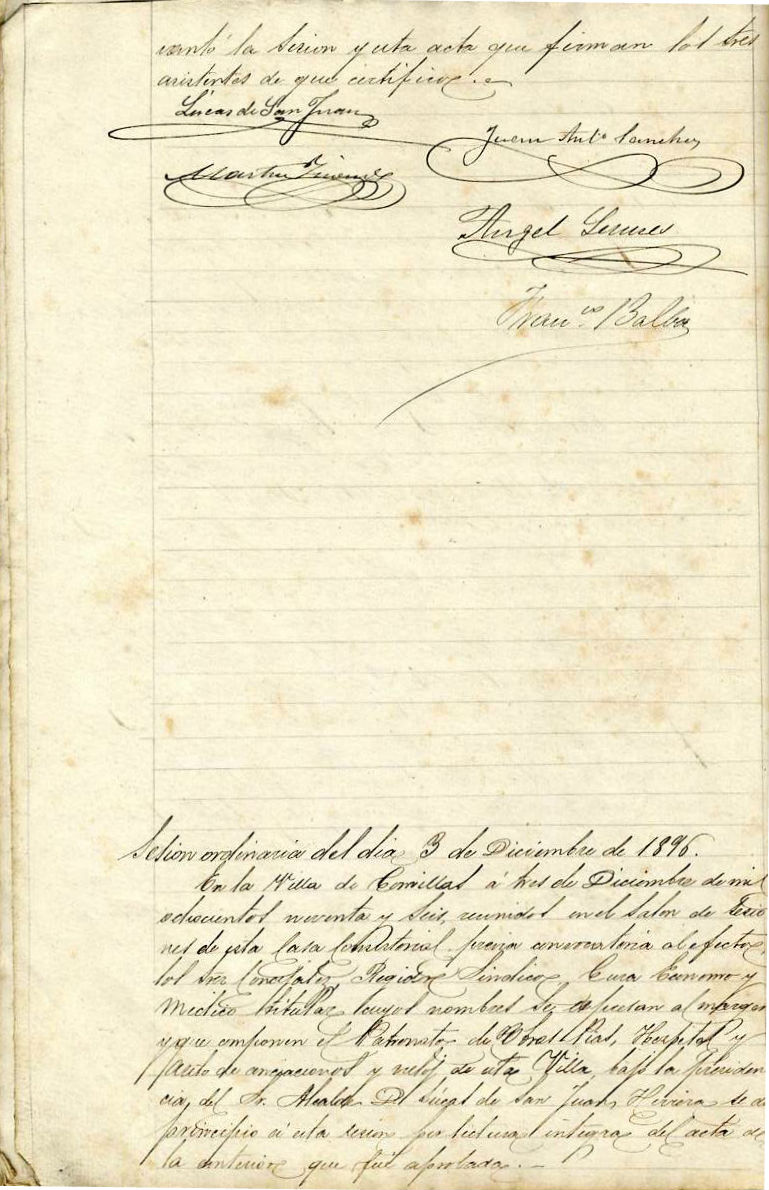 vantó la Sesion y esta acta que firman los tres
asistentes de que certifico.
Lucas de San Juan
Juan Ant.º Sanchez
Martin
Angel
Fran.co Balbas
Sesion ordinaria del dia 3 de Diciembre de 1896.
En la Villa de Comillas á tres de Diciembre de mil
ochocientos noventa y seis, reunidos en el Salon de Sesio
nes de esta Casa Consistorial previa convocatoria al efecto,
los Sres Concejales, Regidor Sindico, Cura Economo y
Medico titular cuyos nombres se espresan al margen
y que componen el Patronato de Obras Pias, Hospital y
Asilo de ancianos y de esta Villa, bajo la presiden
cia, del Sr. Alcalde Dn Lúcas de San Juan se dá
principio á esta sesion por lectura integra del acta de
la anterior que fué aprobada.